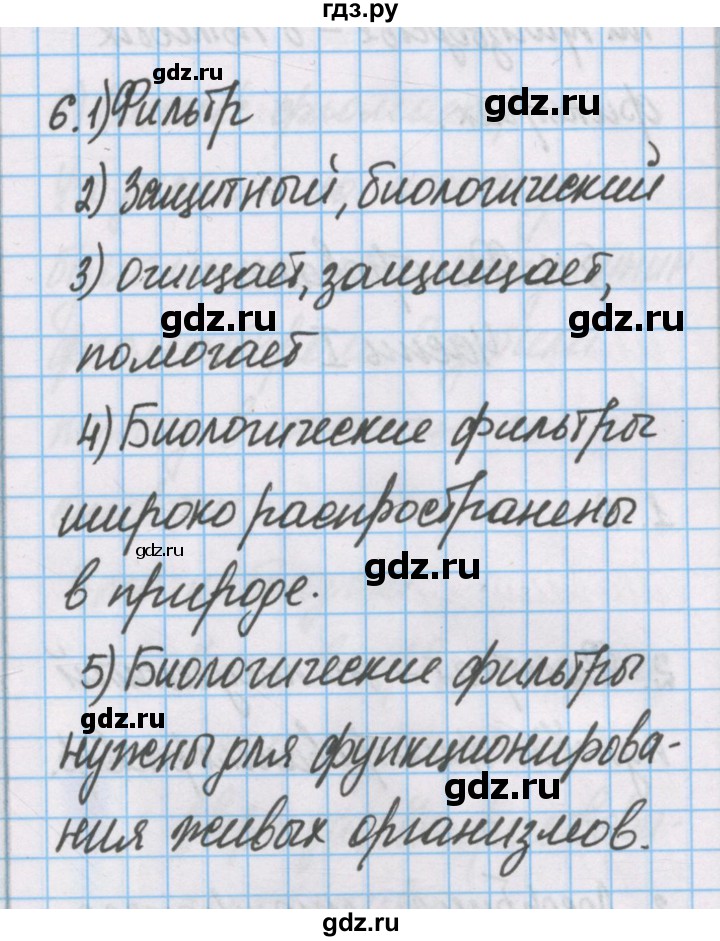 гдз.ру
gdz.ru
6.1) Фильтр
gdz.ru
2) Защитный, биологический
3) очищает, защищает,
gdz.ru
gdz.ru
помогает
4) Биологические фильтры
широко распространены
gdz.ru
gdz.ru
в природе.
5) Биологические фильтры
gdz.ru
нужны для функционирова-
gdz.ru
ния живых организмов.
gdz.ru